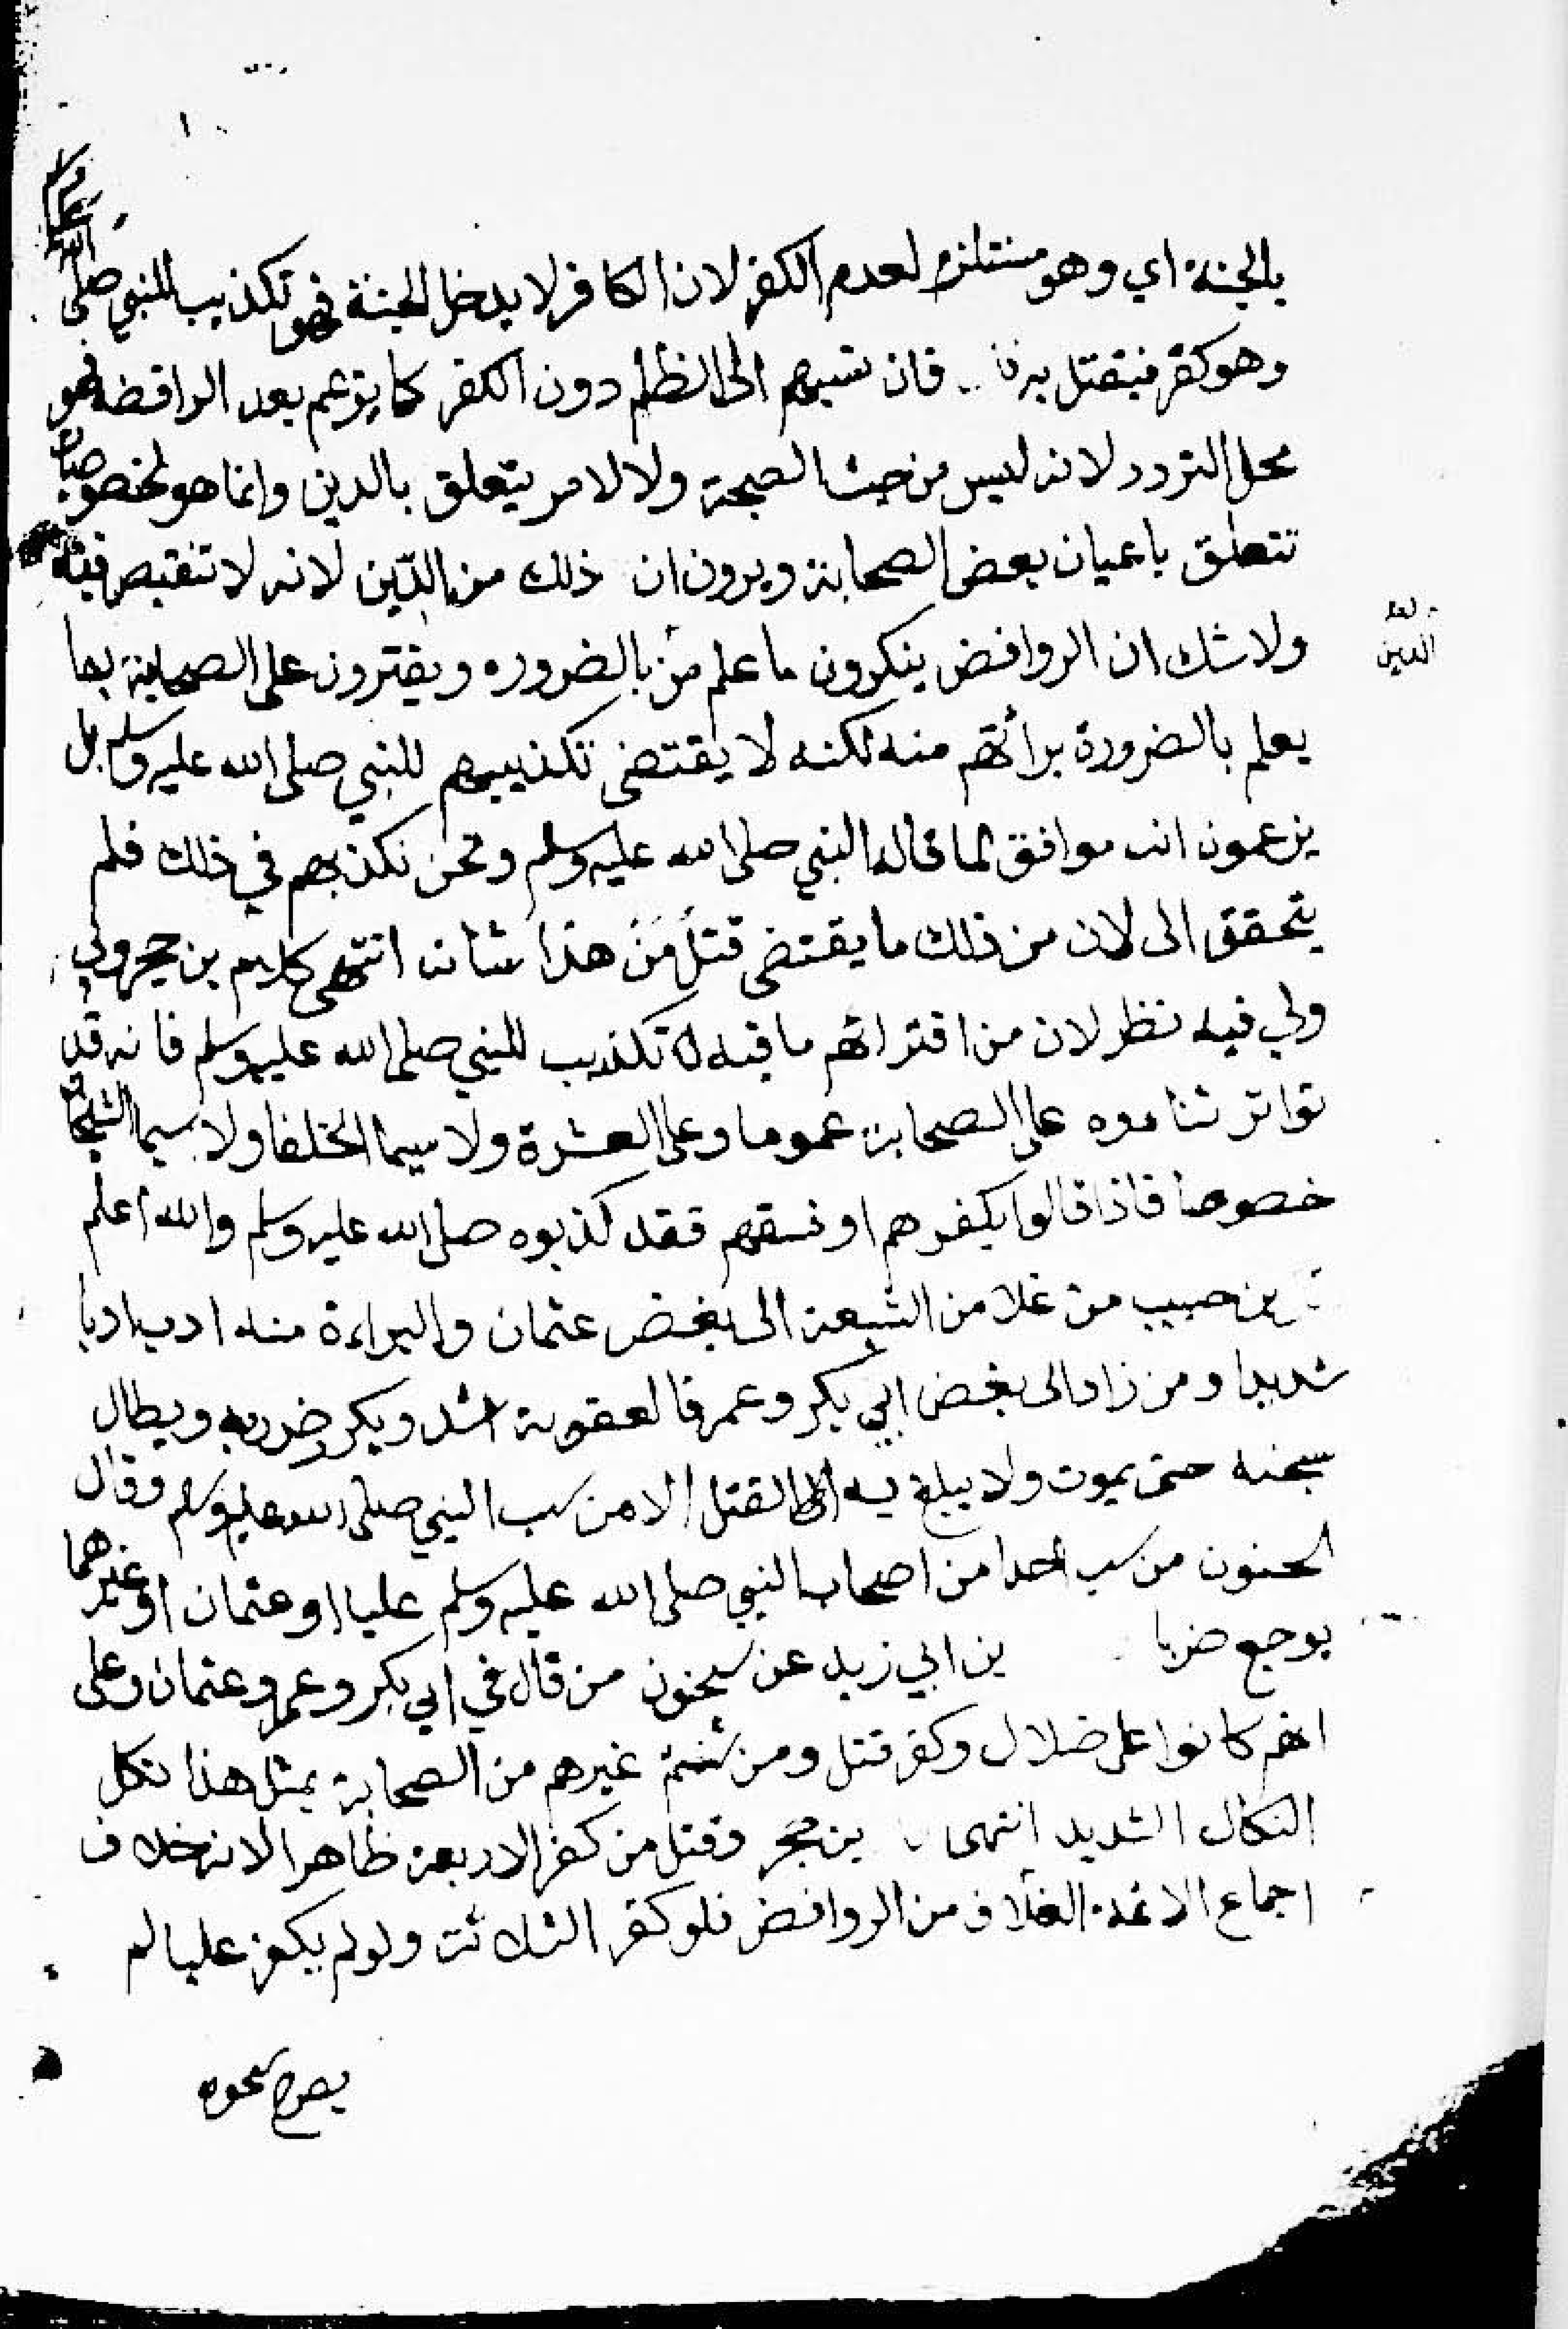 بالجنة اي وهو مستلزم لعدم الكفر لان الكافر لا يدخل الجنة فهو تكذيب للنبي صلى الله عليه وسلم
وهو كفر فيقتل به فان نسبهم الى الظلم دون الكفر كما يزعم بعد الرافضة فهو
محل التردد لانه ليس من حيث الصحبة ولا لامر يتعلق بالدين وانما هو لخصوصيات
تتعلق باعيان بعض الصحابة ويرون ان ذلك من الدين لانه لا تنقيص فيه
الدين
ولا شك ان الروافض ينكرون ما علم من بالضروره ويفترون على الصحابة بما
يعلم بالضرورة براتهم منه لكنه لا يقتضى تكذيبهم للنبي صلى الله عليه وسلم بل
يزعمون انه موافق لما قاله النبي صلى الله عليه وسلم ونحن نكذبهم في ذلك فلم
يتحقق الى الان من ذلك ما يقتضى قتل من هذا شانه انتهى كلام بن حجر ولي
ولي فيه نظر لان من افتراتهم ما فيه تكذيب للنبي صلى الله عليه وسلم فانه قد
تواتر ثناءوه على الصحابة عموما وعلى العشرة ولا سيما الخلفا ولا سيما الشيخان
خصوصا فاذا قالوا بكفرهم او فسقهم فقد كذبوه صلى الله عليه وسلم والله اعلم
بن حبيب من غلا من الشيعة الى بغض عثمان والبراءة منه ادب ادبا
شديدا ومن زاد الى بغض ابي بكر وعمر فالعقوبة اشد ويكرر ضربه ويطال
سجنه حتى يموت ولا يبلغ به الى القتل الا من سب النبي صلى الله عليه وسلم وقال
سحنون من سب احدا من اصحاب النبي صلى الله عليه وسلم عليا او عثمان او غيرهما
يوجع ضربا بن ابي زيد عن سحنون من قال في ابي بكر وعمر وعثمان وعلى
انهم كانوا على ضلال وكفر قتل ومن شتم غيرهم من الصحابة بمثل هذا نكل
النكال الشديد انتهى بن حجر وقتل من كفر الاربعة ظاهر الانه خلاف
اجماع الائمة الغلاة من الروافض فلو كفر الثلاثة ولو لم يكفر عليا لم
يصرح سحنون